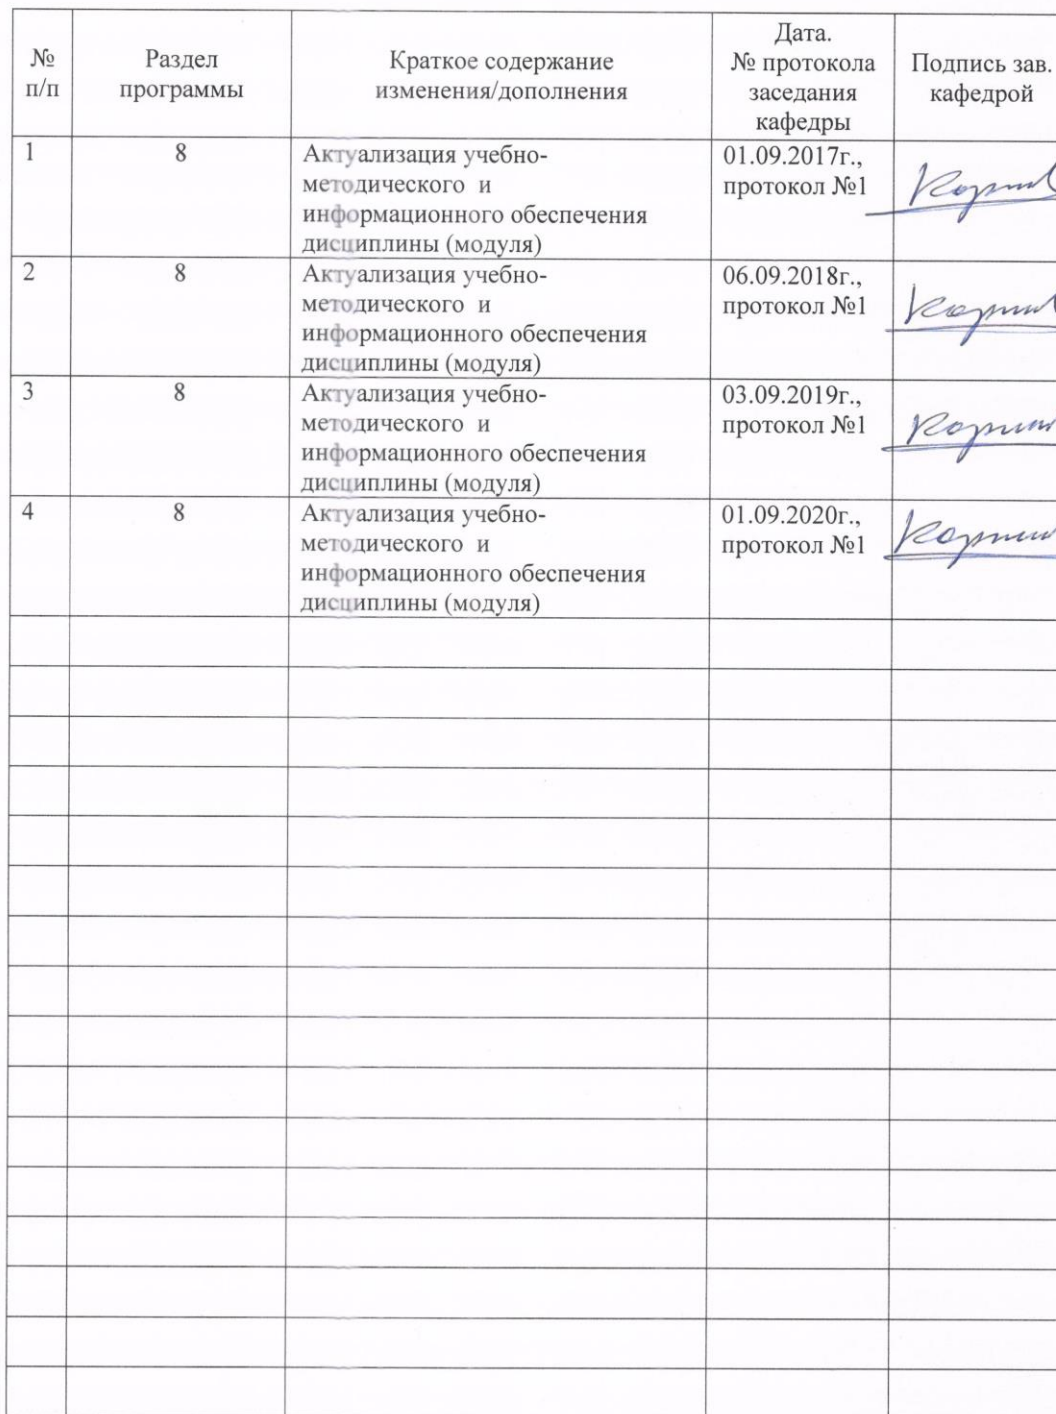 № п/п
Раздел программы
Краткое содержание изменения/дополнения
Дата. № протокола заседания кафедры
Подпись зав. кафедрой
1
8
Актуализация учебно-
методического и
информационного обеспечения
дисциплины (модуля)
01.09.2017г.,
протокол №1
2
8
Актуализация учебно-
методического и
информационного обеспечения
дисциплины (модуля)
06.09.2018г.,
протокол №1
3
8
Актуализация учебно-
методического и
информационного обеспечения
дисциплины (модуля)
03.09.2019г.,
протокол №1
4
8
Актуализация учебно-
методического и
информационного обеспечения
дисциплины (модуля)
01.09.2020г.,
протокол №1